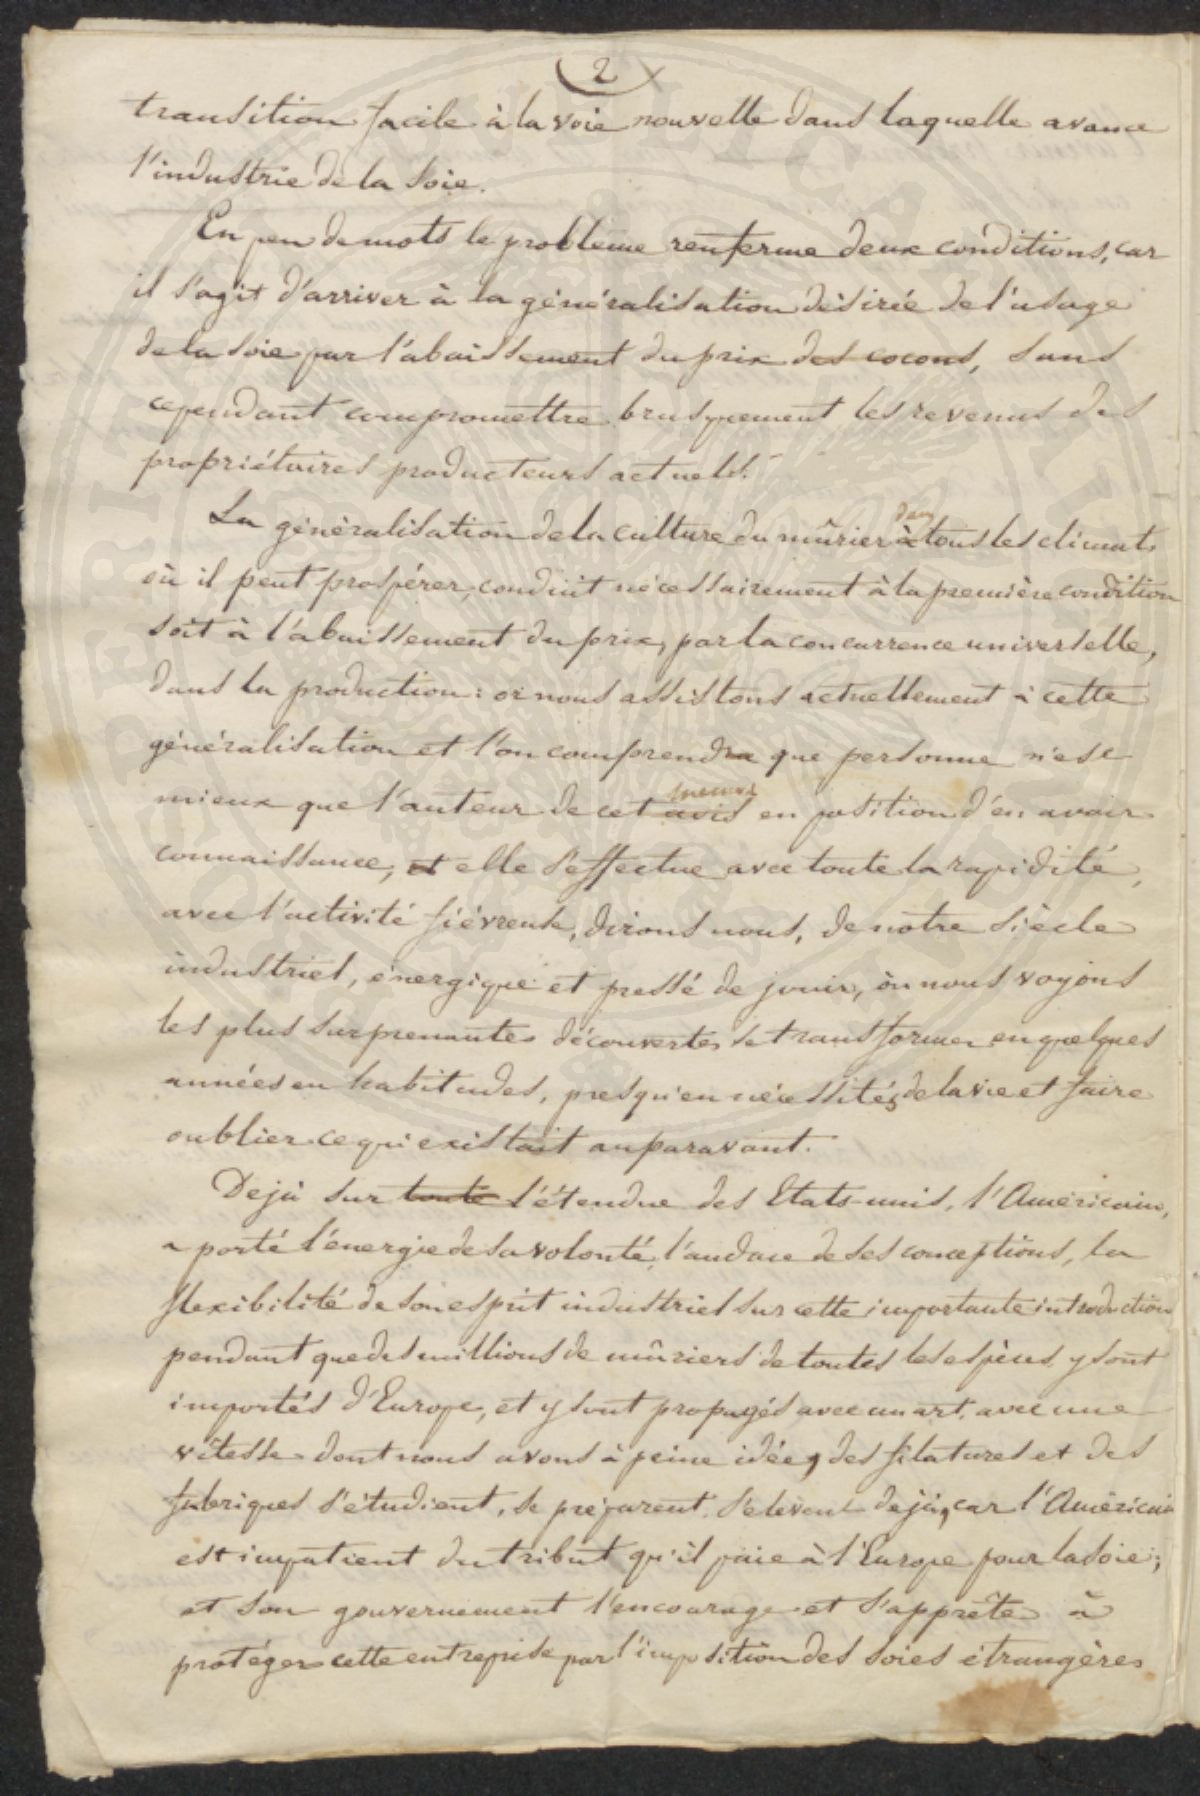 2
transition facile à la voie nouvelle dans laquelle avance
l'industrie de la soie.
En peu de mots le problème renferme deux conditions, car
il s'agit d'arriver à la généralisation désirée de l'usage
de la soie par l'abaissement du prix des cocons, sans
cependant compromettre brusquement les revenus des
propriétaires producteurs actuels.
La généralisation de la culture du mûrier à dans tous les climats
où il peut prospérer, conduit nécessairement à la première condition
soit à l'abaissement du prix, par la concurrence universelle,
dans la production : or nous assistons actuellement à cette
généralisation et l'on comprendra que personne n'est
mieux que l'auteur de cet avis en position d'en avoir
connaissance, et elle s'effectue avec toute la rapidité,
avec l'activité fiévreuse, dirons nous, de notre siècle
industriel, énergique et pressé de jouir, où nous voyons
les plus surprenantes découvertes se transformer en quelques
années en habitudes, presqu'en nécessités de la vie et faire
oublier ce qui existait auparavant.
Dejà sur toute l'étendue des Etats-unis, l'Américain,
a porté l'énergie de sa volonté, l'audace de ses conceptions, la
flexibilité de son esprit industriel sur cette importante introduction
pendant que des millions de mûriers de toutes les espèces y sont
importés d'Europe, et y sont propagés avec un art, avec une
vitesse dont nous avons à peine idée, des filatures et des
fabriques s'étudient, se préparent, s'élèvent dejà, car l'Américain
est impatient du tribut qu'il paie à l'Europe pour la soie ;
et son gouvernement l'encourage et s'apprête à
protéger cette entreprise par l'imposition des soies étrangères